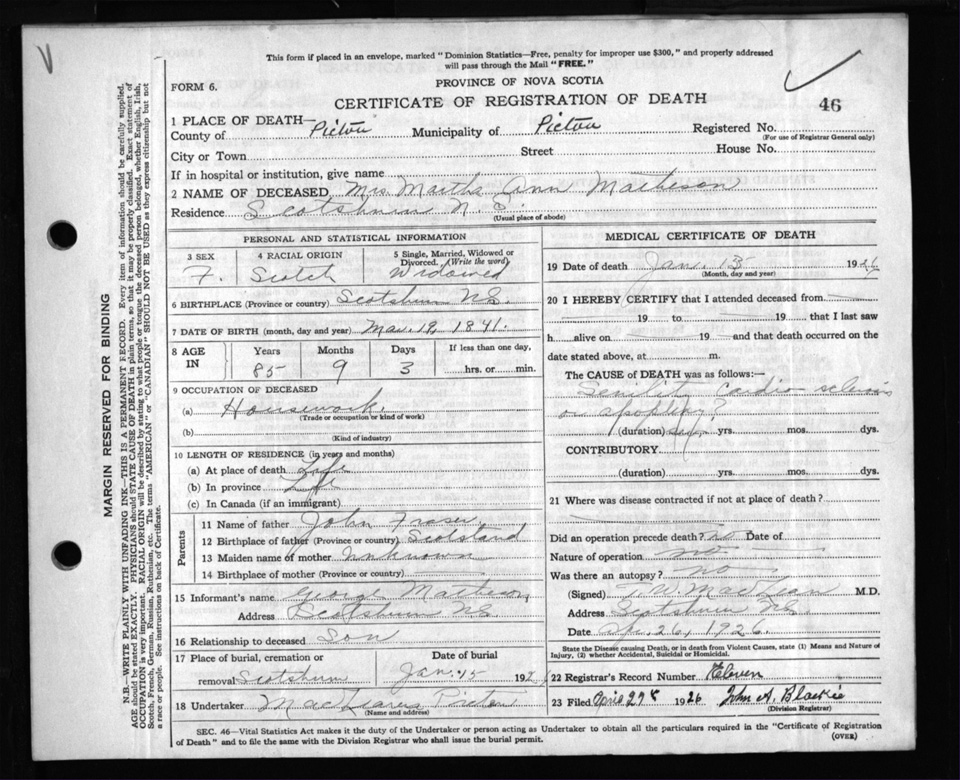 This form if placed in an envelope, marked "Dominion Statistics—Free, penalty for improper use $300," and properly addressed
will pass through the Mail "FREE."
FORM 6.
PROVINCE OF NOVA SCOTIA
CERTIFICATE OF REGISTRATION OF DEATH
46
1 PLACE OF DEATH—
County of Pictou Municipality of Pictou Registered No.
(For use of Registrar General only)
City or Town Street House No.
If in hospital or institution, give name
2 NAME OF DECEASED Mrs Martha Ann Matheson
Residence Scotsburn N.S.
(Usual place of abode)
PERSONAL AND STATISTICAL INFORMATION
3 SEX 4 RACIAL ORIGIN 5 Single, Married, Widowed or Divorced. (Write the word)
F. Scotch Widowed
6 BIRTHPLACE (Province or country) Scotsburn N.S.
7 DATE OF BIRTH (month, day and year) Mar. 19, 1841.
8 AGE IN Years Months Days If less than one day,
85 9 3 hrs. or min.
9 OCCUPATION OF DECEASED
(a) Housework
(Trade or occupation or kind of work)
(b)
(Kind of industry)
10 LENGTH OF RESIDENCE (in years and months)
(a) At place of death Life
(b) In province Life
(c) In Canada (if an immigrant)
Parents
11 Name of father John Fraser
12 Birthplace of father (Province or country) Scotland
13 Maiden name of mother unknown
14 Birthplace of mother (Province or country)
15 Informant's name George Matheson
Address Scotsburn N.S.
16 Relationship to deceased Son
17 Place of burial, cremation or removal Scotsburn
Date of burial Jan. 15 192
18 Undertaker Pictou
(Name and address)
MEDICAL CERTIFICATE OF DEATH
19 Date of death Jan. 13 1926
(Month, day and year)
20 I HEREBY CERTIFY that I attended deceased from
19 to 19 that I last saw
h alive on 19 and that death occurred on the
date stated above, at m.
The CAUSE of DEATH was as follows:—
Senility cardio sclerosis
or apoplexy?
(duration) yrs. mos. dys.
CONTRIBUTORY
(duration) yrs. mos. dys.
21 Where was disease contracted if not at place of death?
Did an operation precede death? no Date of
Nature of operation no
Was there an autopsy? no
(Signed) M.D.
Address Scotsburn N.S.
Date 26, 1926.
State the Disease causing Death, or in death from Violent Causes, state (1) Means and Nature of
Injury, (2) whether Accidental, Suicidal or Homicidal.
22 Registrar's Record Number Eleven
23 Filed April 27th 1926 John A. Blaikie
(Division Registrar)
SEC. 46—Vital Statistics Act makes it the duty of the Undertaker or person acting as Undertaker to obtain all the particulars required in the "Certificate of Registration
of Death" and to file the same with the Division Registrar who shall issue the burial permit.
(OVER)
MARGIN RESERVED FOR BINDING
N.B.—WRITE PLAINLY WITH UNFADING INK—THIS IS A PERMANENT RECORD. Every item of information should be carefully supplied.
AGE should be stated EXACTLY. PHYSICIANS should STATE CAUSE OF DEATH in plain terms, so that it may be properly classified. Exact statement of
OCCUPATION is very important. RACIAL ORIGIN will be described by stating to what people or tongue the deceased person belonged, whether English, Irish,
Scotch, French, German, Russian, Ruthenian, etc. The terms "AMERICAN" or "CANADIAN" SHOULD NOT BE USED as they express citizenship but not
a race or people. See instructions on back of Certificate.